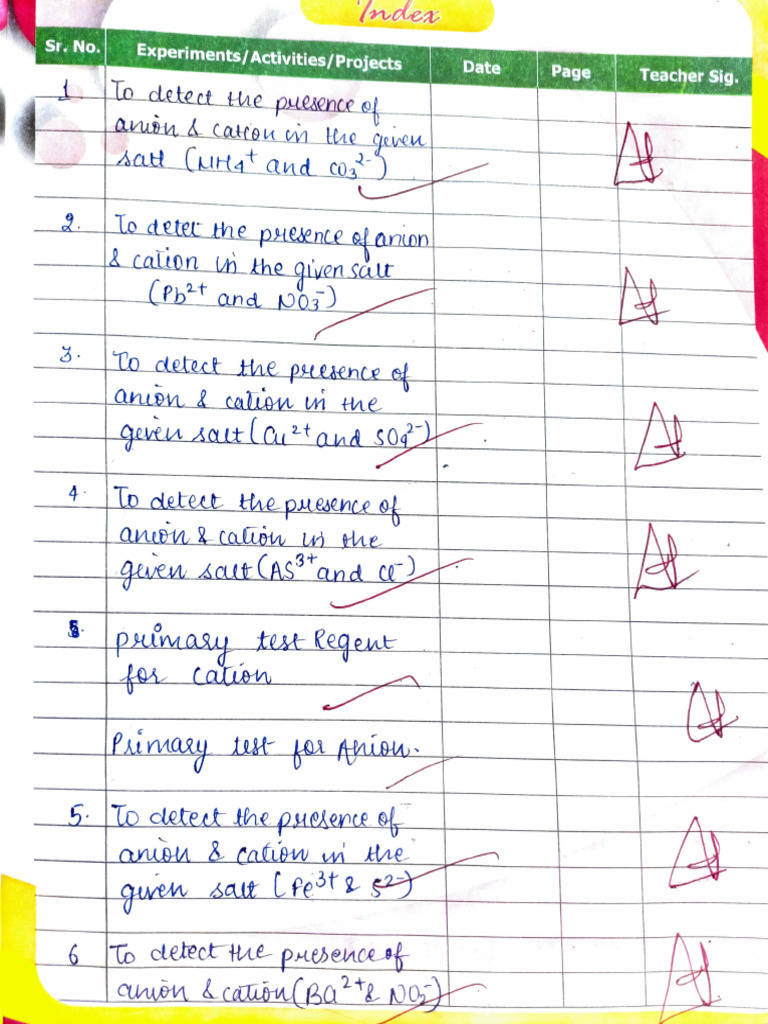 Index
Sr. No. Experiments/Activities/Projects Date Page Teacher Sig.
1 To detect the presence of
anion & cation in the given
salt (NH4⁺ and CO₃²⁻)
2. To detet the presence of anion
& cation in the given salt
(Pb²⁺ and NO₃⁻)
3. To detect the presence of
anion & cation in the
geven salt (Cu²⁺ and SO₄²⁻)
4. To detect the presence of
anion & cation in the
geven salt (AS³⁺ and Cl⁻)
primary test Regent
for cation
Primary test for Anion.
5. To detect the presence of
anion & cation in the
given salt (Fe³⁺ & S²⁻)
6 To detect the presence of
anion & cation (Ba²⁺ & NO₂⁻)